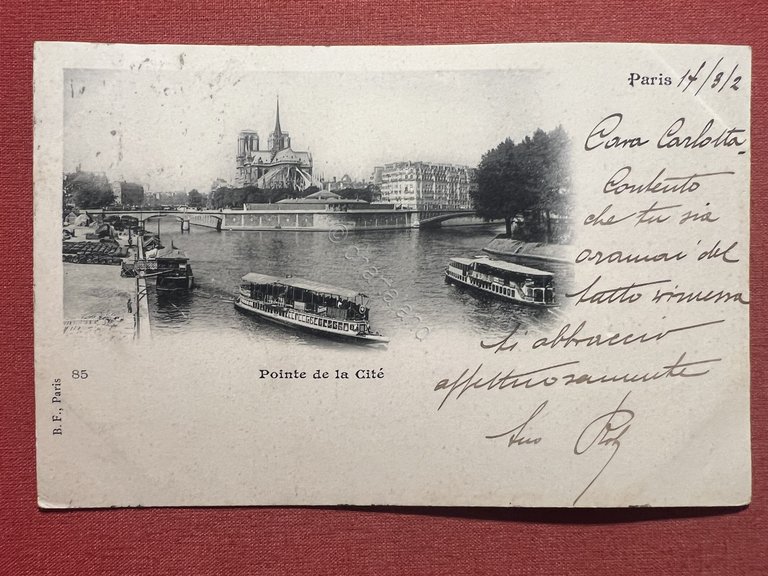 Paris 14/3/2
Cara Carlotta
Contento
che tu sia
oramai del
tutto rimessa
ti abbraccio
affettuosamente
tuo
85
Pointe de la Cité
B. F., Paris